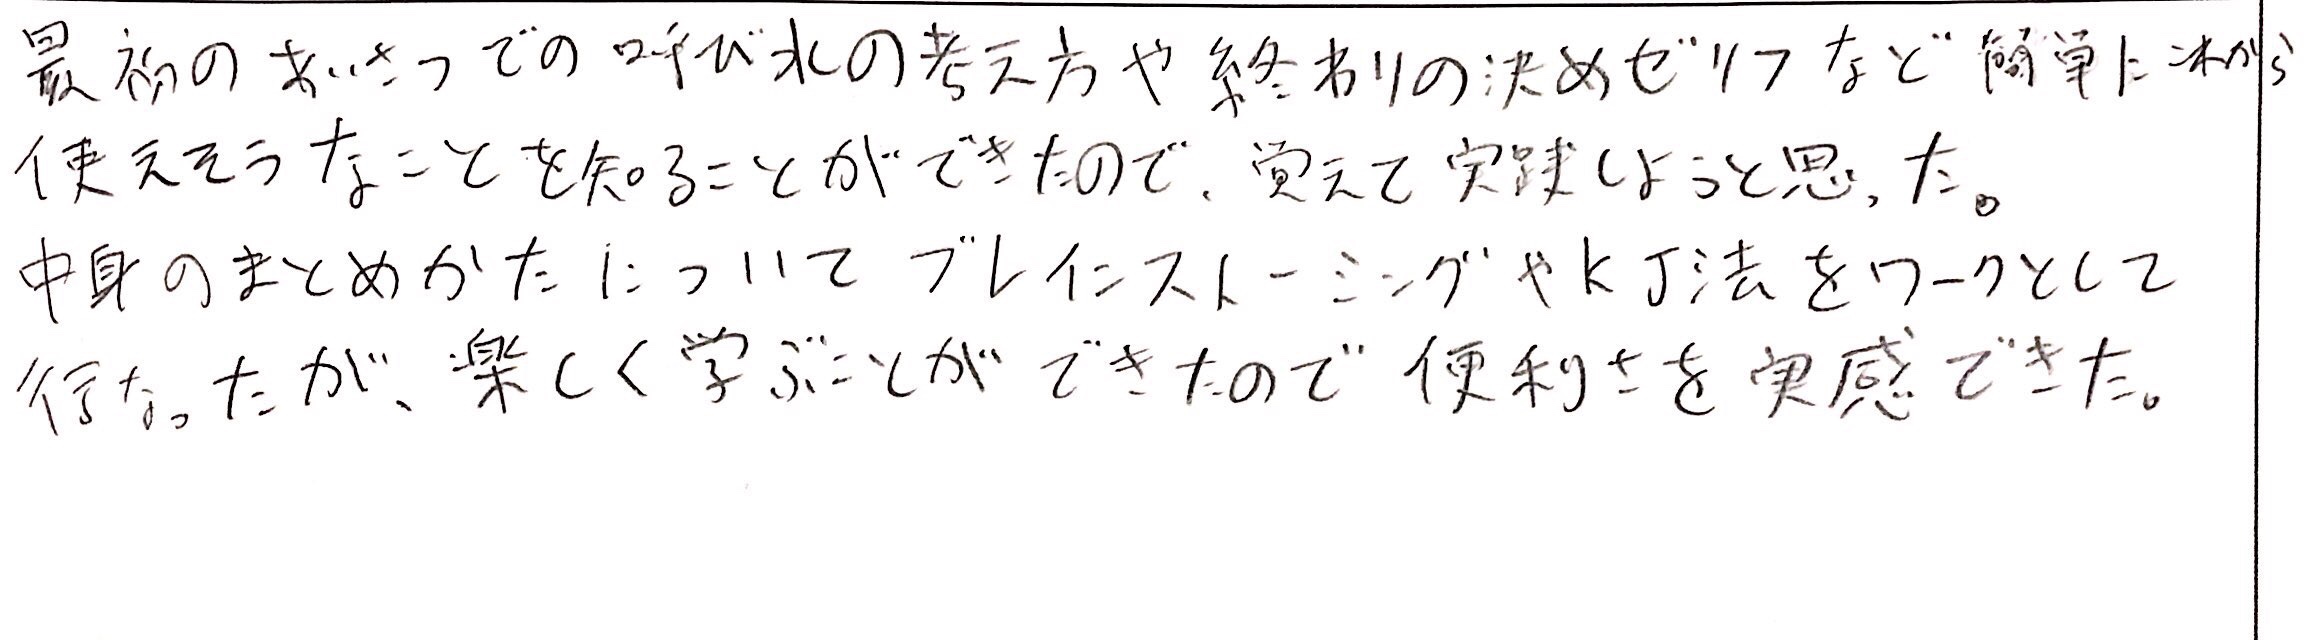 最初のあいさつでの呼び水の考え方や終わりの決めゼリフなど簡単にこれから
使えそうなことを知ることができたので、覚えて実践しようと思った。
中身のまとめかたについてブレインストーミングやKJ法をワークとして
行なったが、楽しく学ぶことができたので便利さを実感できた。